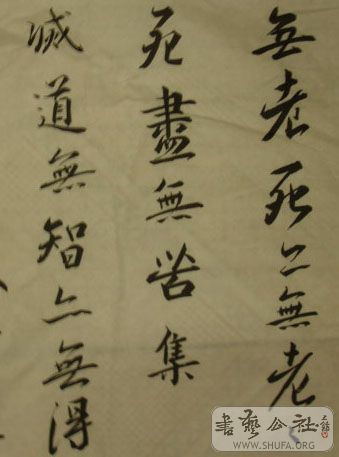 無老死亦無老
死盡無苦集
滅道無智亦無得
書藝公社
WWW.SHUFA.ORG